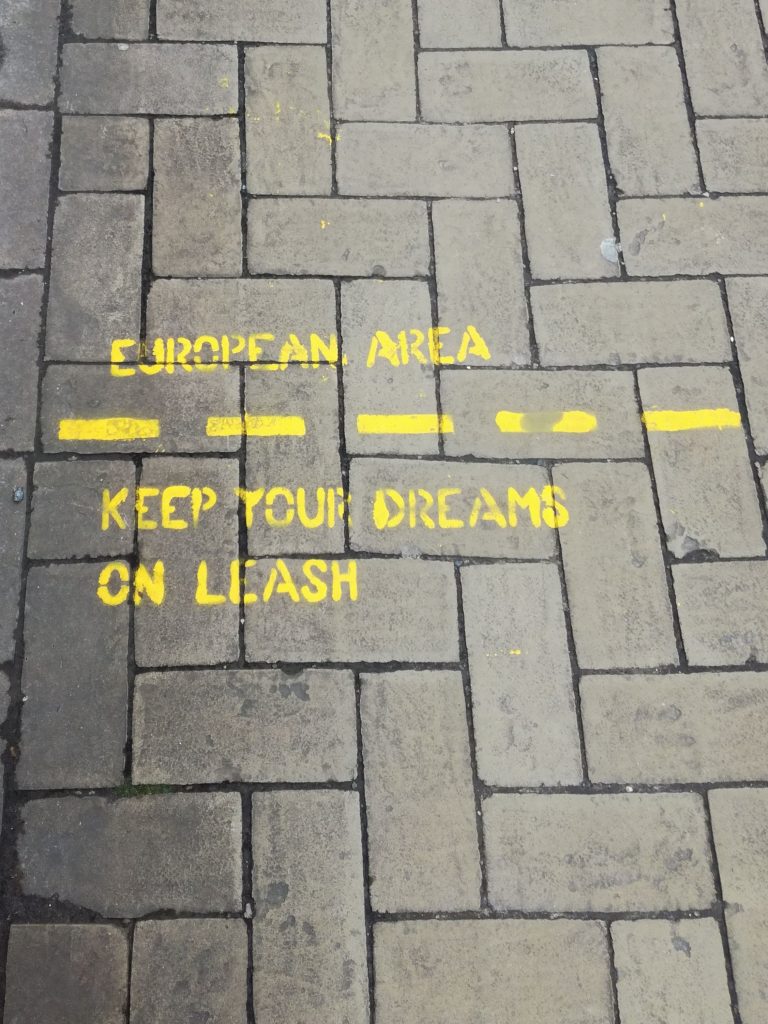 EUROPEAN AREA
KEEP YOUR DREAMS
ON LEASH